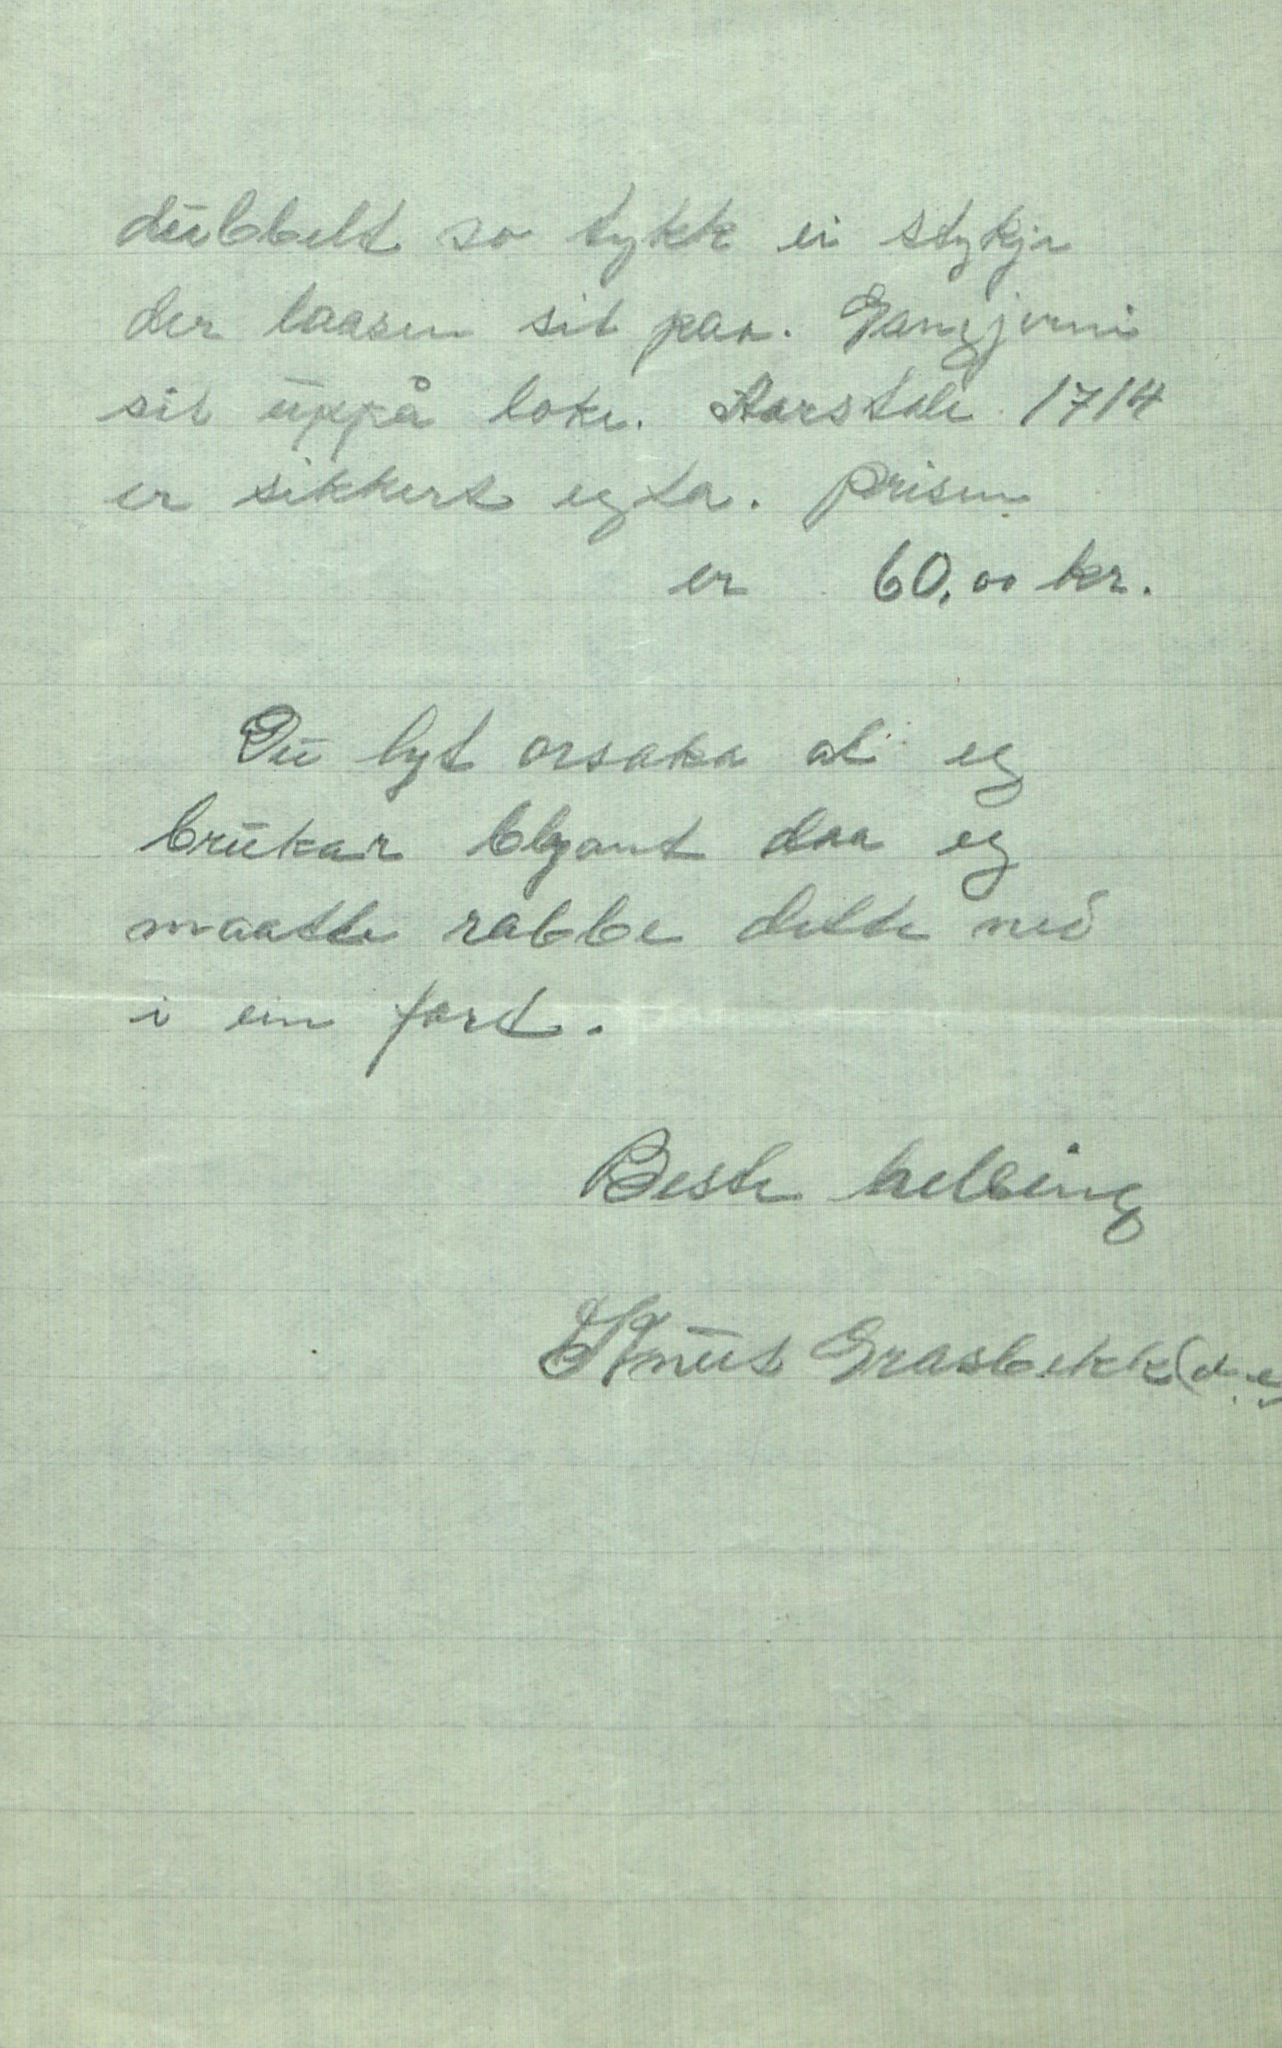 dubbelt so tykk ei stykja
der laasen sit paa. Gangjerni
sit uppå loke. Aarstale 1714
er sikkert egta. Prisen
er 60,00 kr.
Du lyt orsaka at eg
brukar blyant daa eg
maatte rabbe dette ned
i ein fart.
Beste helsing
Knut Grasbekk (d.e.